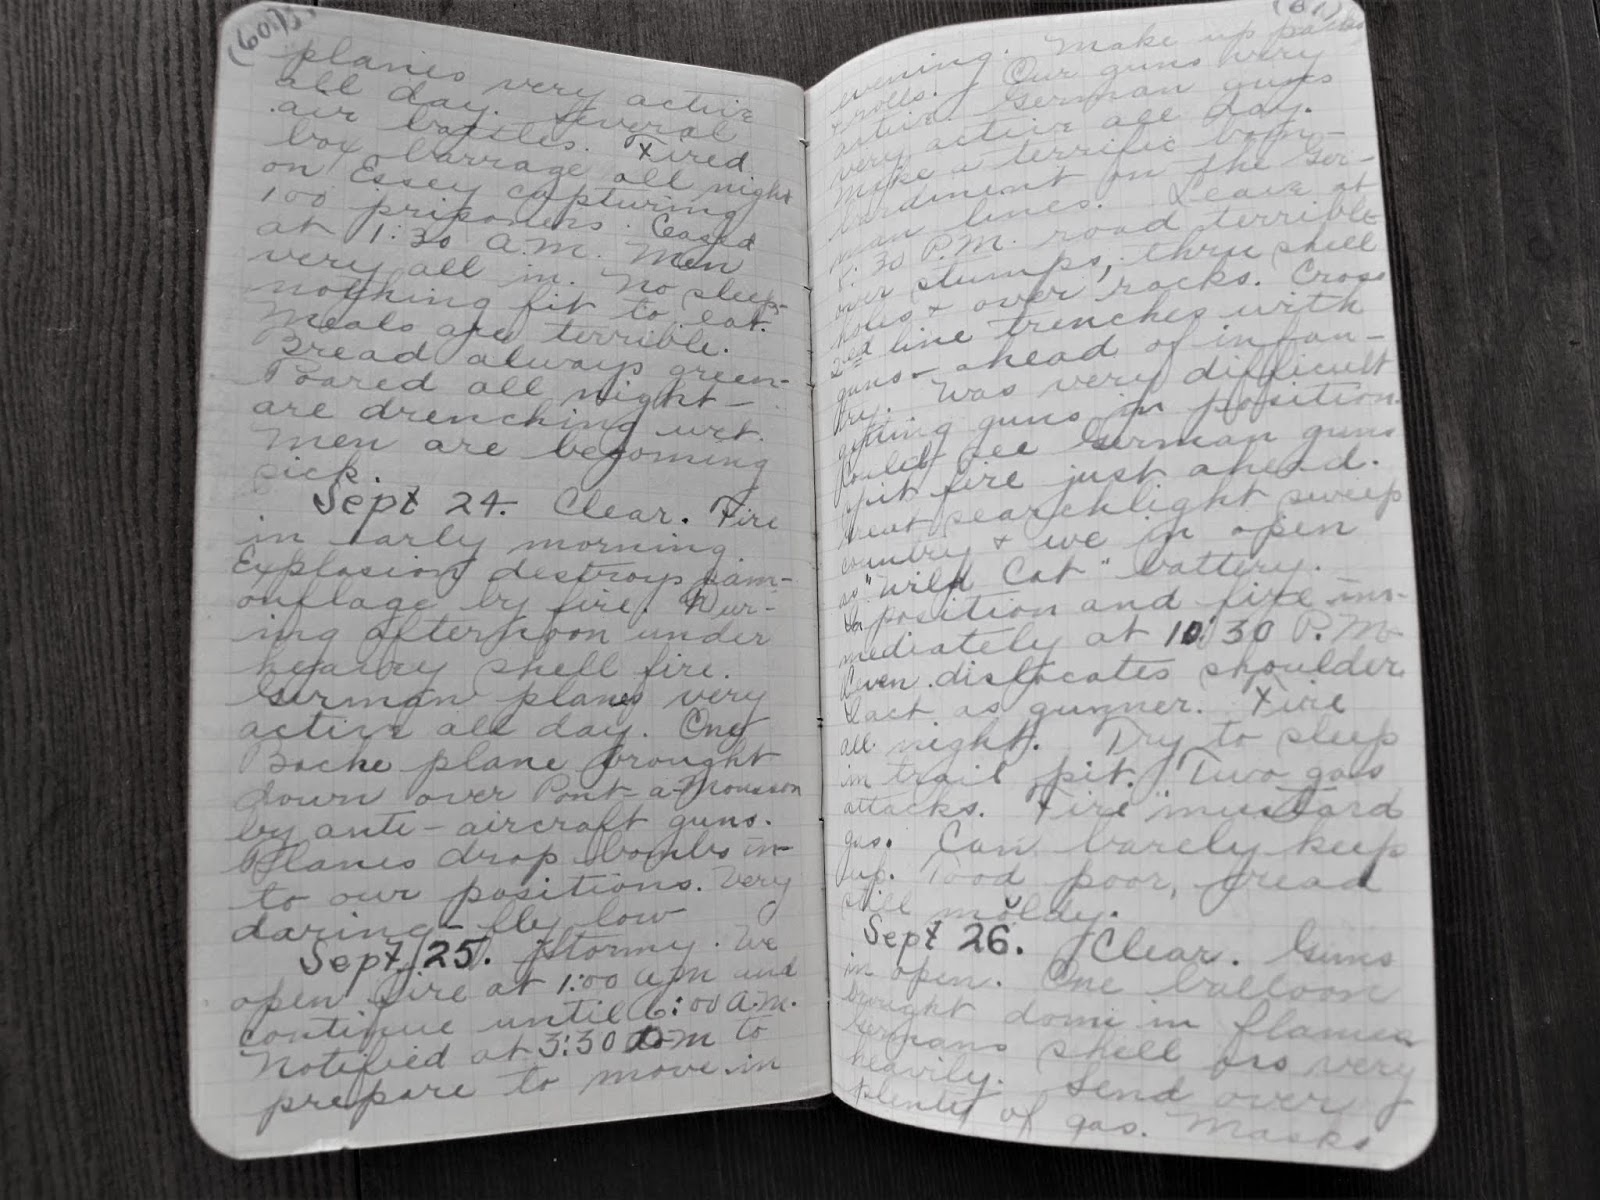 (60)
planes very active
all day. Several
air battles. Fired
box barrage all night
on Essey capturing
100 prisoners. Ceased
at 1:30 A.M. Men
very all in. No sleep-
nothing fit to eat.
Meals are terrible.
Bread always green-
Poared all night-
are drenching wet.
Men are becoming
sick.
Sept 24. Clear. Fire
in early morning.
Explosion destroys cam-
ouflage by fire. Dur-
ing afternoon under
heavy shell fire.
German planes very
active all day. One
Boche plane brought
down over Pont-a-Mousson
by anti-aircraft guns.
Planes drop bombs in-
to our positions. Very
daring - fly low
Sept 25. Stormy. We
open fire at 1:00 a.m and
continue until 6:00 A.M.
Notified at 3:30 to
prepare to move in
(61)
evening. Make up packs
& rolls. Our guns very
active German guns
very active all day.
Make a terrific bom-
bardment on the Ger-
man lines. Leave at
30 P.M. road terrible
over stumps, thru shell
holes & over rocks. Cross
2nd line trenches with
guns - ahead of infan-
try. Was very difficult
getting guns in position.
Could see German guns
spit fire just ahead.
Great searchlight sweep
country & we in open
as "Wild Cat" battery.
In position and fire im-
mediately at 10:30 P.M.
dislocates shoulder
I act as gunner. Fire
all night. Try to sleep
in trail pit. Two gas
attacks. Fire "mustard
gas. Can barely keep
up. Food poor, bread
still moldy.
Sept 26. Clear. Guns
in open. One balloon
brought down in flames
Germans shell us very
heavily. Send over
plenty of gas. Masks